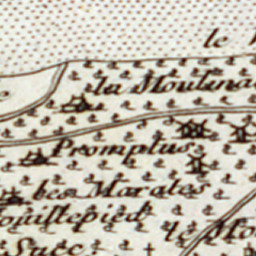 le
la Moulina
Promptus
les Marates
ouillepied
Mo
Succ.